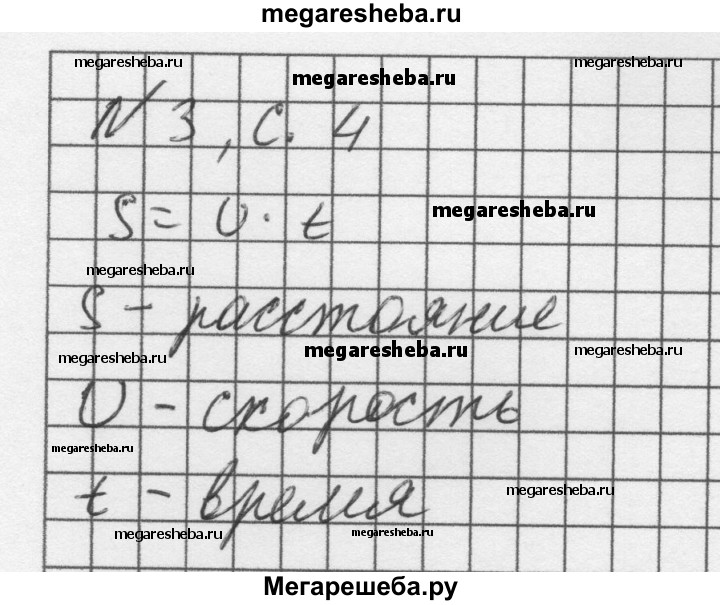 megaresheba.ru
megaresheba.ru
megaresheba.ru
megaresheba.ru
N 3, с. 4
S = υ · t
megaresheba.ru
megaresheba.ru
S - расстояние
megaresheba.ru
megaresheba.ru
megaresheba.ru
υ - скорость
megaresheba.ru
t - время
megaresheba.ru
megaresheba.ru
megaresheba.ru
Мегарешеба.ру